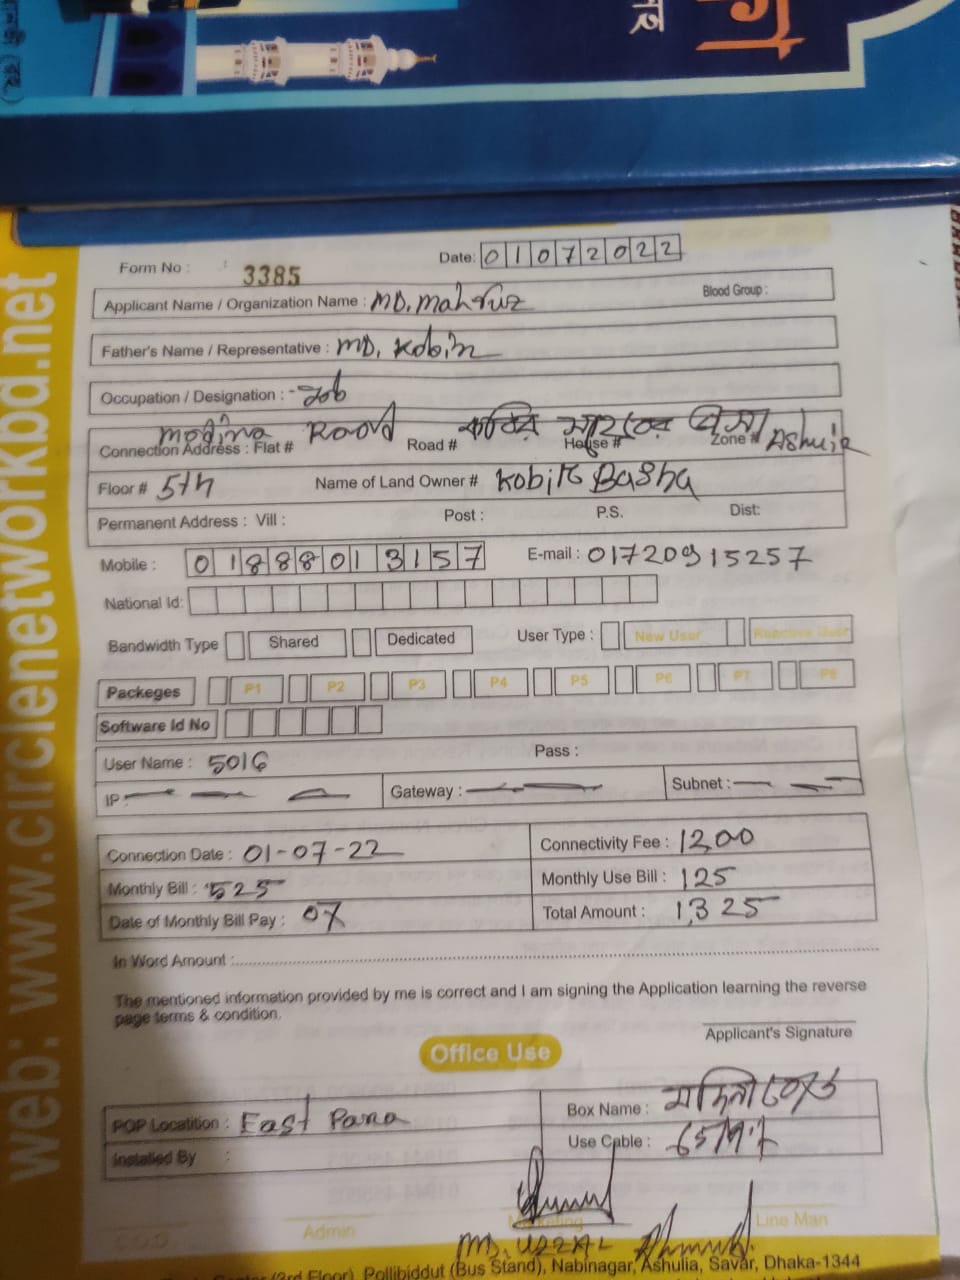 web: www.circlenetworkbd.net
Form No : 3385
Date: 01072022
Applicant Name / Organization Name : MD. Mahfuz Blood Group :
Father's Name / Representative : MD. Kobir
Occupation / Designation : - Job
Connection Address : Flat # Modina Road Road # House # Zone #
Floor # 5th Name of Land Owner # Kobir Basha
Permanent Address : Vill : Post : P.S. Dist:
Mobile : 01888013157 E-mail : 01720915257
National Id:
Bandwidth Type Shared Dedicated User Type : New User
Packeges P1 P2 P3 P4 P5 P6 P7 P8
Software Id No
User Name : 5016 Pass :
IP : Gateway : Subnet :
Connection Date : 01-07-22 Connectivity Fee : 1200
Monthly Bill : 525 Monthly Use Bill : 125
Date of Monthly Bill Pay : 07 Total Amount : 1325
In Word Amount :
The mentioned information provided by me is correct and I am signing the Application learning the reverse
page terms & condition.
Applicant's Signature
Office Use
POP Locatition : East Para Box Name :
Installed By : Use Cable :
Admin Marketing Line Man
MD. UZZAL
(3rd Floor), Pollibiddut (Bus Stand), Nabinagar, Ashulia, Savar, Dhaka-1344